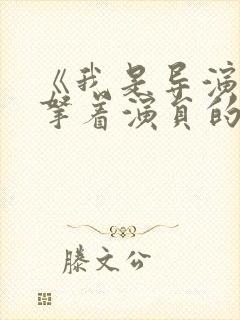 《我是导演
拏着演员的
滕文公